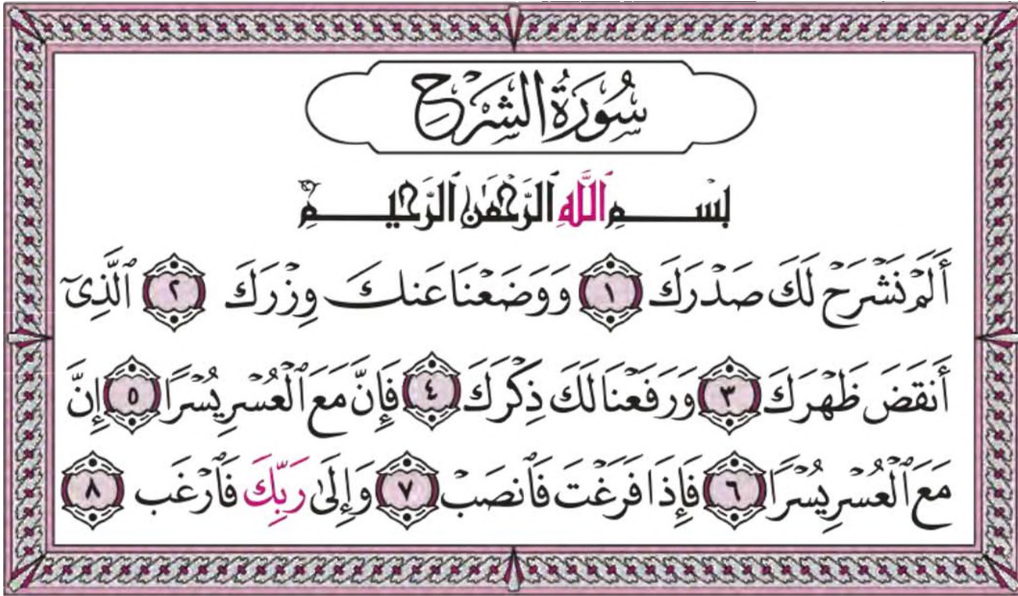 سُورَةُ الشَّرْحِ
بِسْمِ ٱللَّهِ ٱلرَّحْمَٰنِ ٱلرَّحِيمِ
أَلَمْ نَشْرَحْ لَكَ صَدْرَكَ ١ وَوَضَعْنَا عَنكَ وِزْرَكَ ٢ ٱلَّذِىٓ
أَنقَضَ ظَهْرَكَ ٣ وَرَفَعْنَا لَكَ ذِكْرَكَ ٤ فَإِنَّ مَعَ ٱلْعُسْرِ يُسْرًا ٥ إِنَّ
مَعَ ٱلْعُسْرِ يُسْرًا ٦ فَإِذَا فَرَغْتَ فَٱنصَبْ ٧ وَإِلَىٰ رَبِّكَ فَٱرْغَب ٨